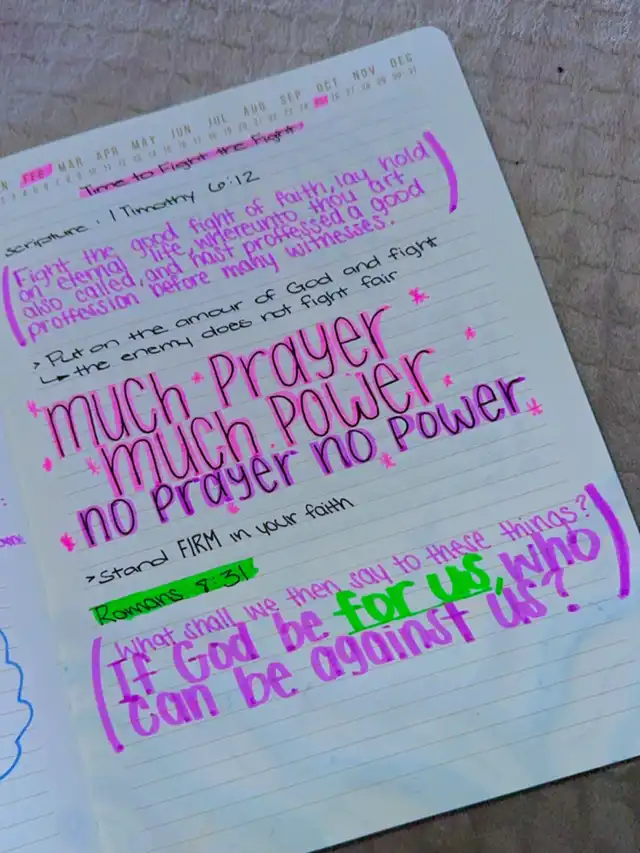 N FEB MAR APR MAY JUN JUL AUG SEP OCT NOV DEC
Time to Fight the Fight
scripture: 1 Timothy 6:12
(Fight the good fight of faith, lay hold
on eternal life, whereunto thou art
also called, and hast proffessed a good
proffession before many witnesses.)
> Put on the amour of God and fight
↳ the enemy does not fight fair
much Prayer
much Power
no Prayer no Power
> Stand FIRM in your faith
Romans 8:31
(What shall we then say to these things?
If God be for us, who
can be against us?)